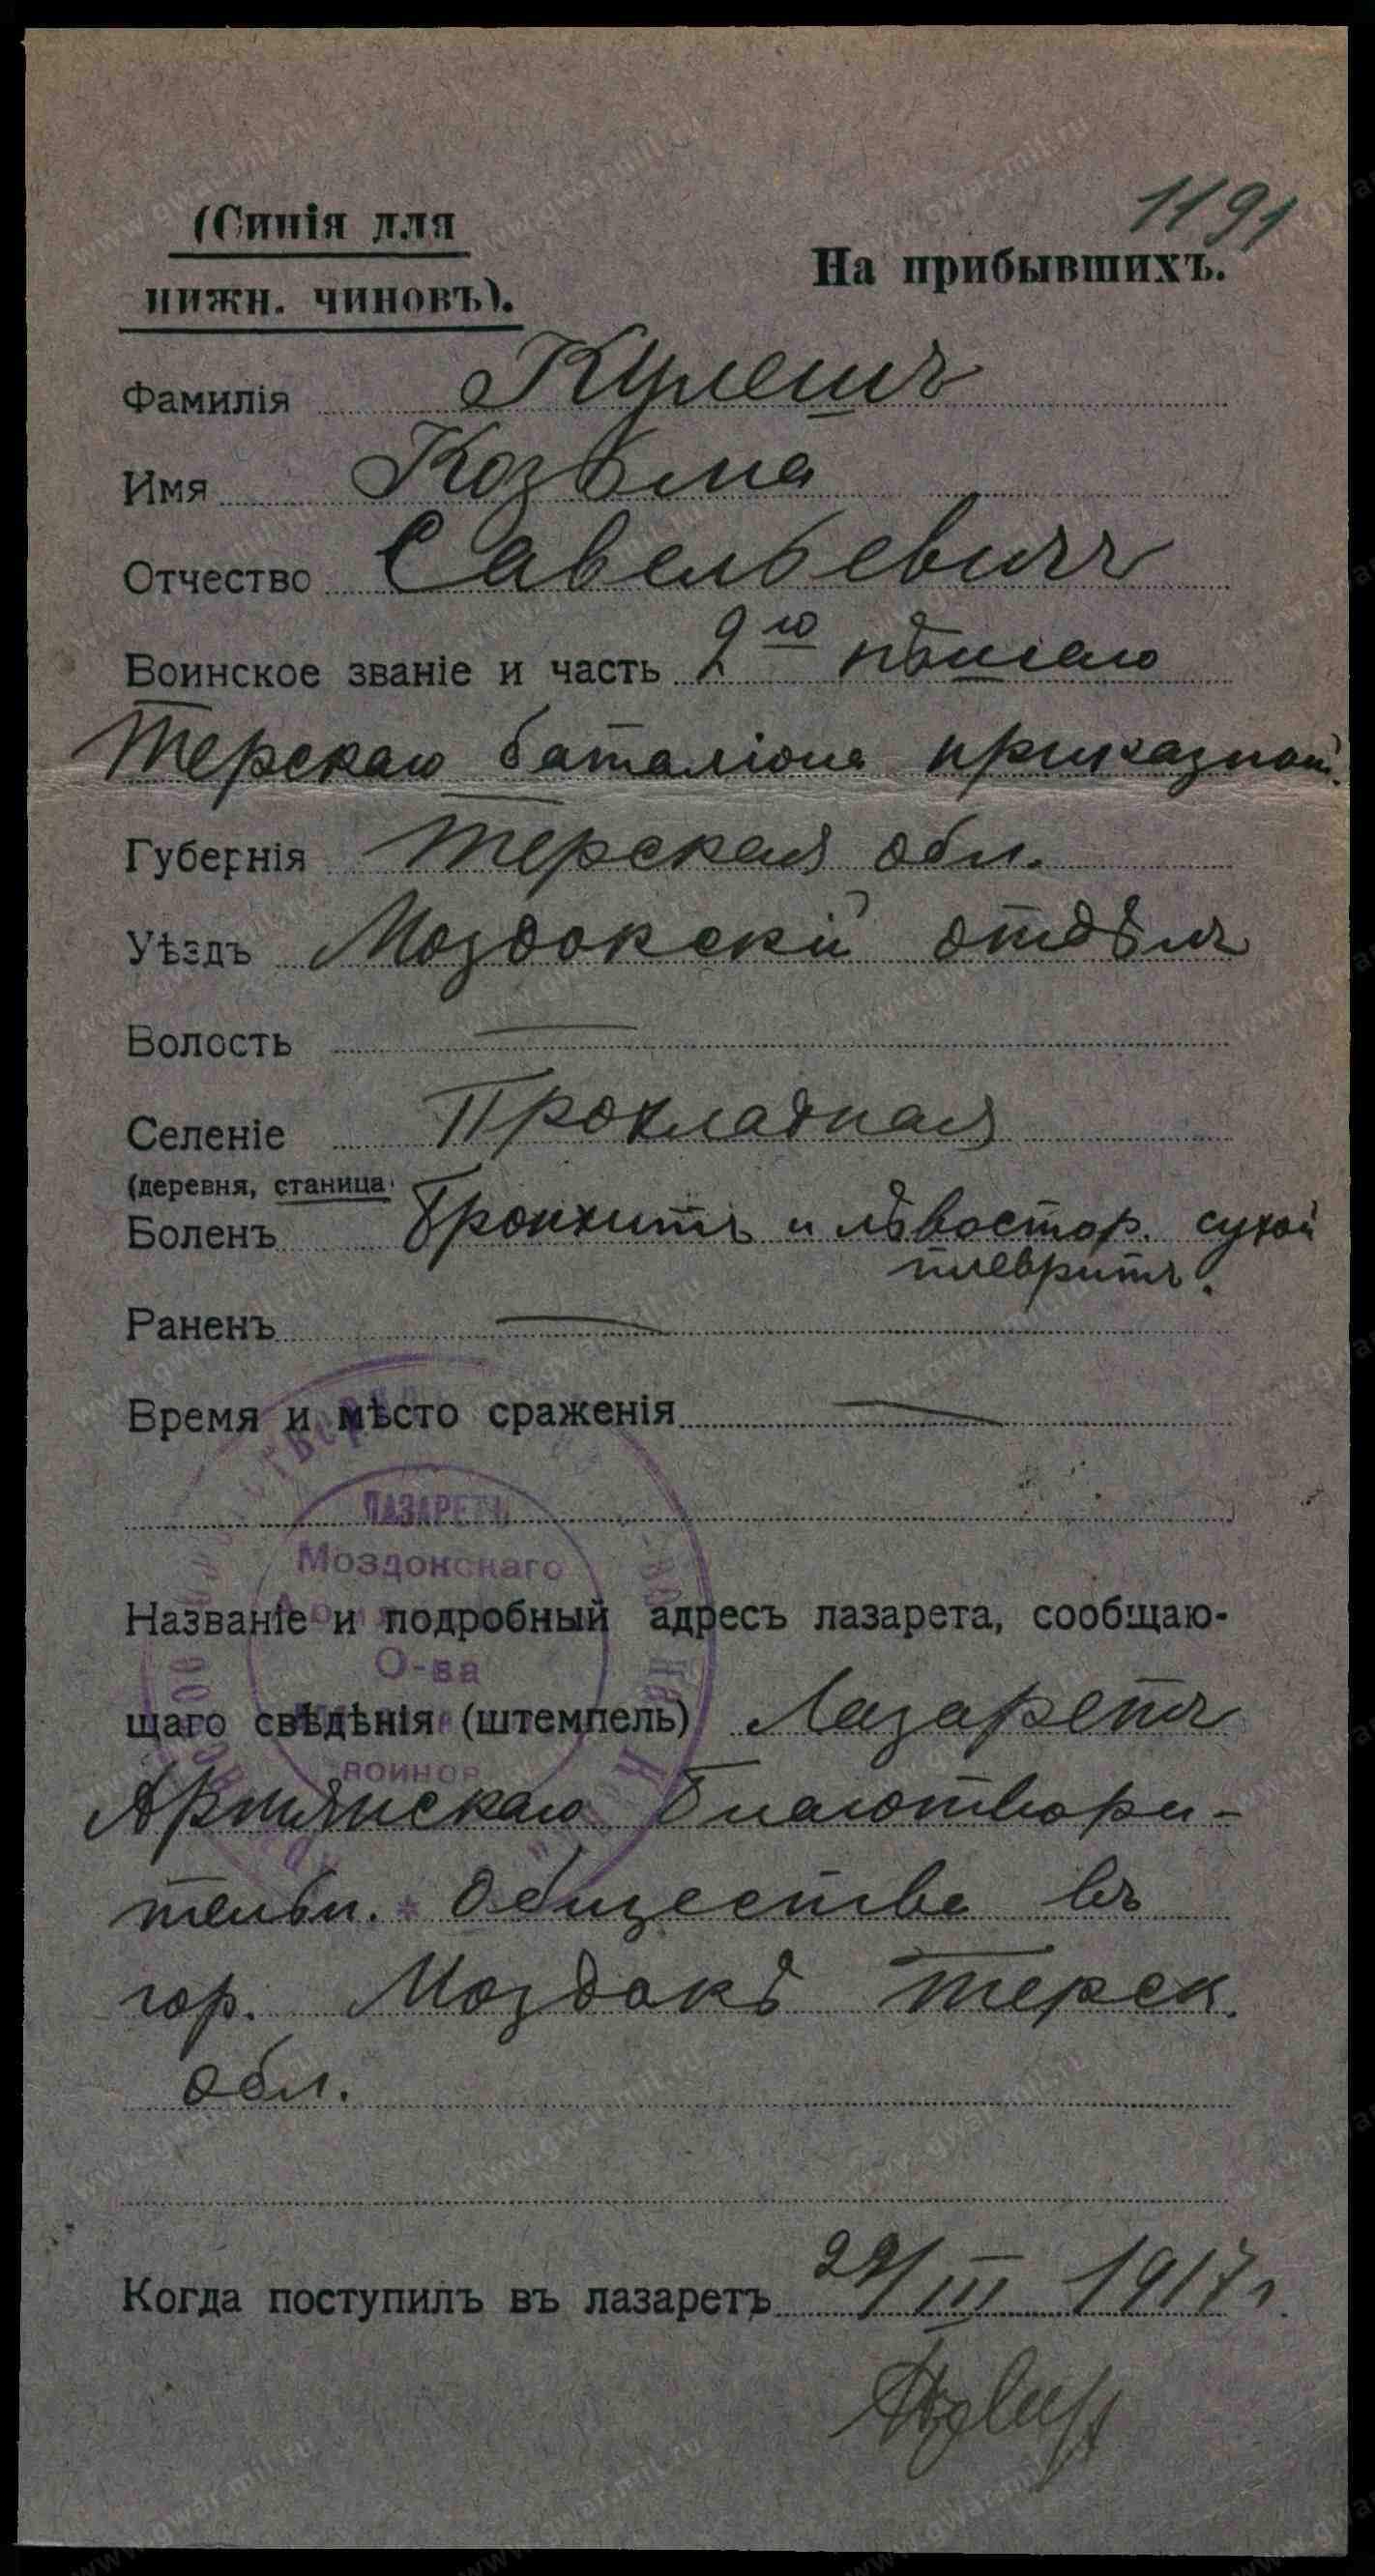 1191
(Синія для
нижн. чиновъ).
На прибывшихъ.
Фамилія Кулешъ
Имя Козьма
Отчество Савельевичъ
Воинское званіе и часть 2го пѣшаго
Терскаго баталіона приказной.
Губернія Терская обл.
Уѣздъ Моздокскій отдѣлъ
Волость —
Селеніе Прохладная
(деревня, станица)
Боленъ Бронхитъ и лѣвостор. сухой
плевритъ.
Раненъ —
Время и мѣсто сраженія —
ЛАЗАРЕТЪ
Моздокскаго
О-ва
ВОИНОВ
Названіе и подробный адресъ лазарета, сообщаю-
щаго свѣдѣнія (штемпель) Лазаретъ
Армянскаго Благотвори-
тельн. Общества въ
гор. Моздокѣ Терск.
обл.
Когда поступилъ въ лазаретъ 29/III 1917 г.